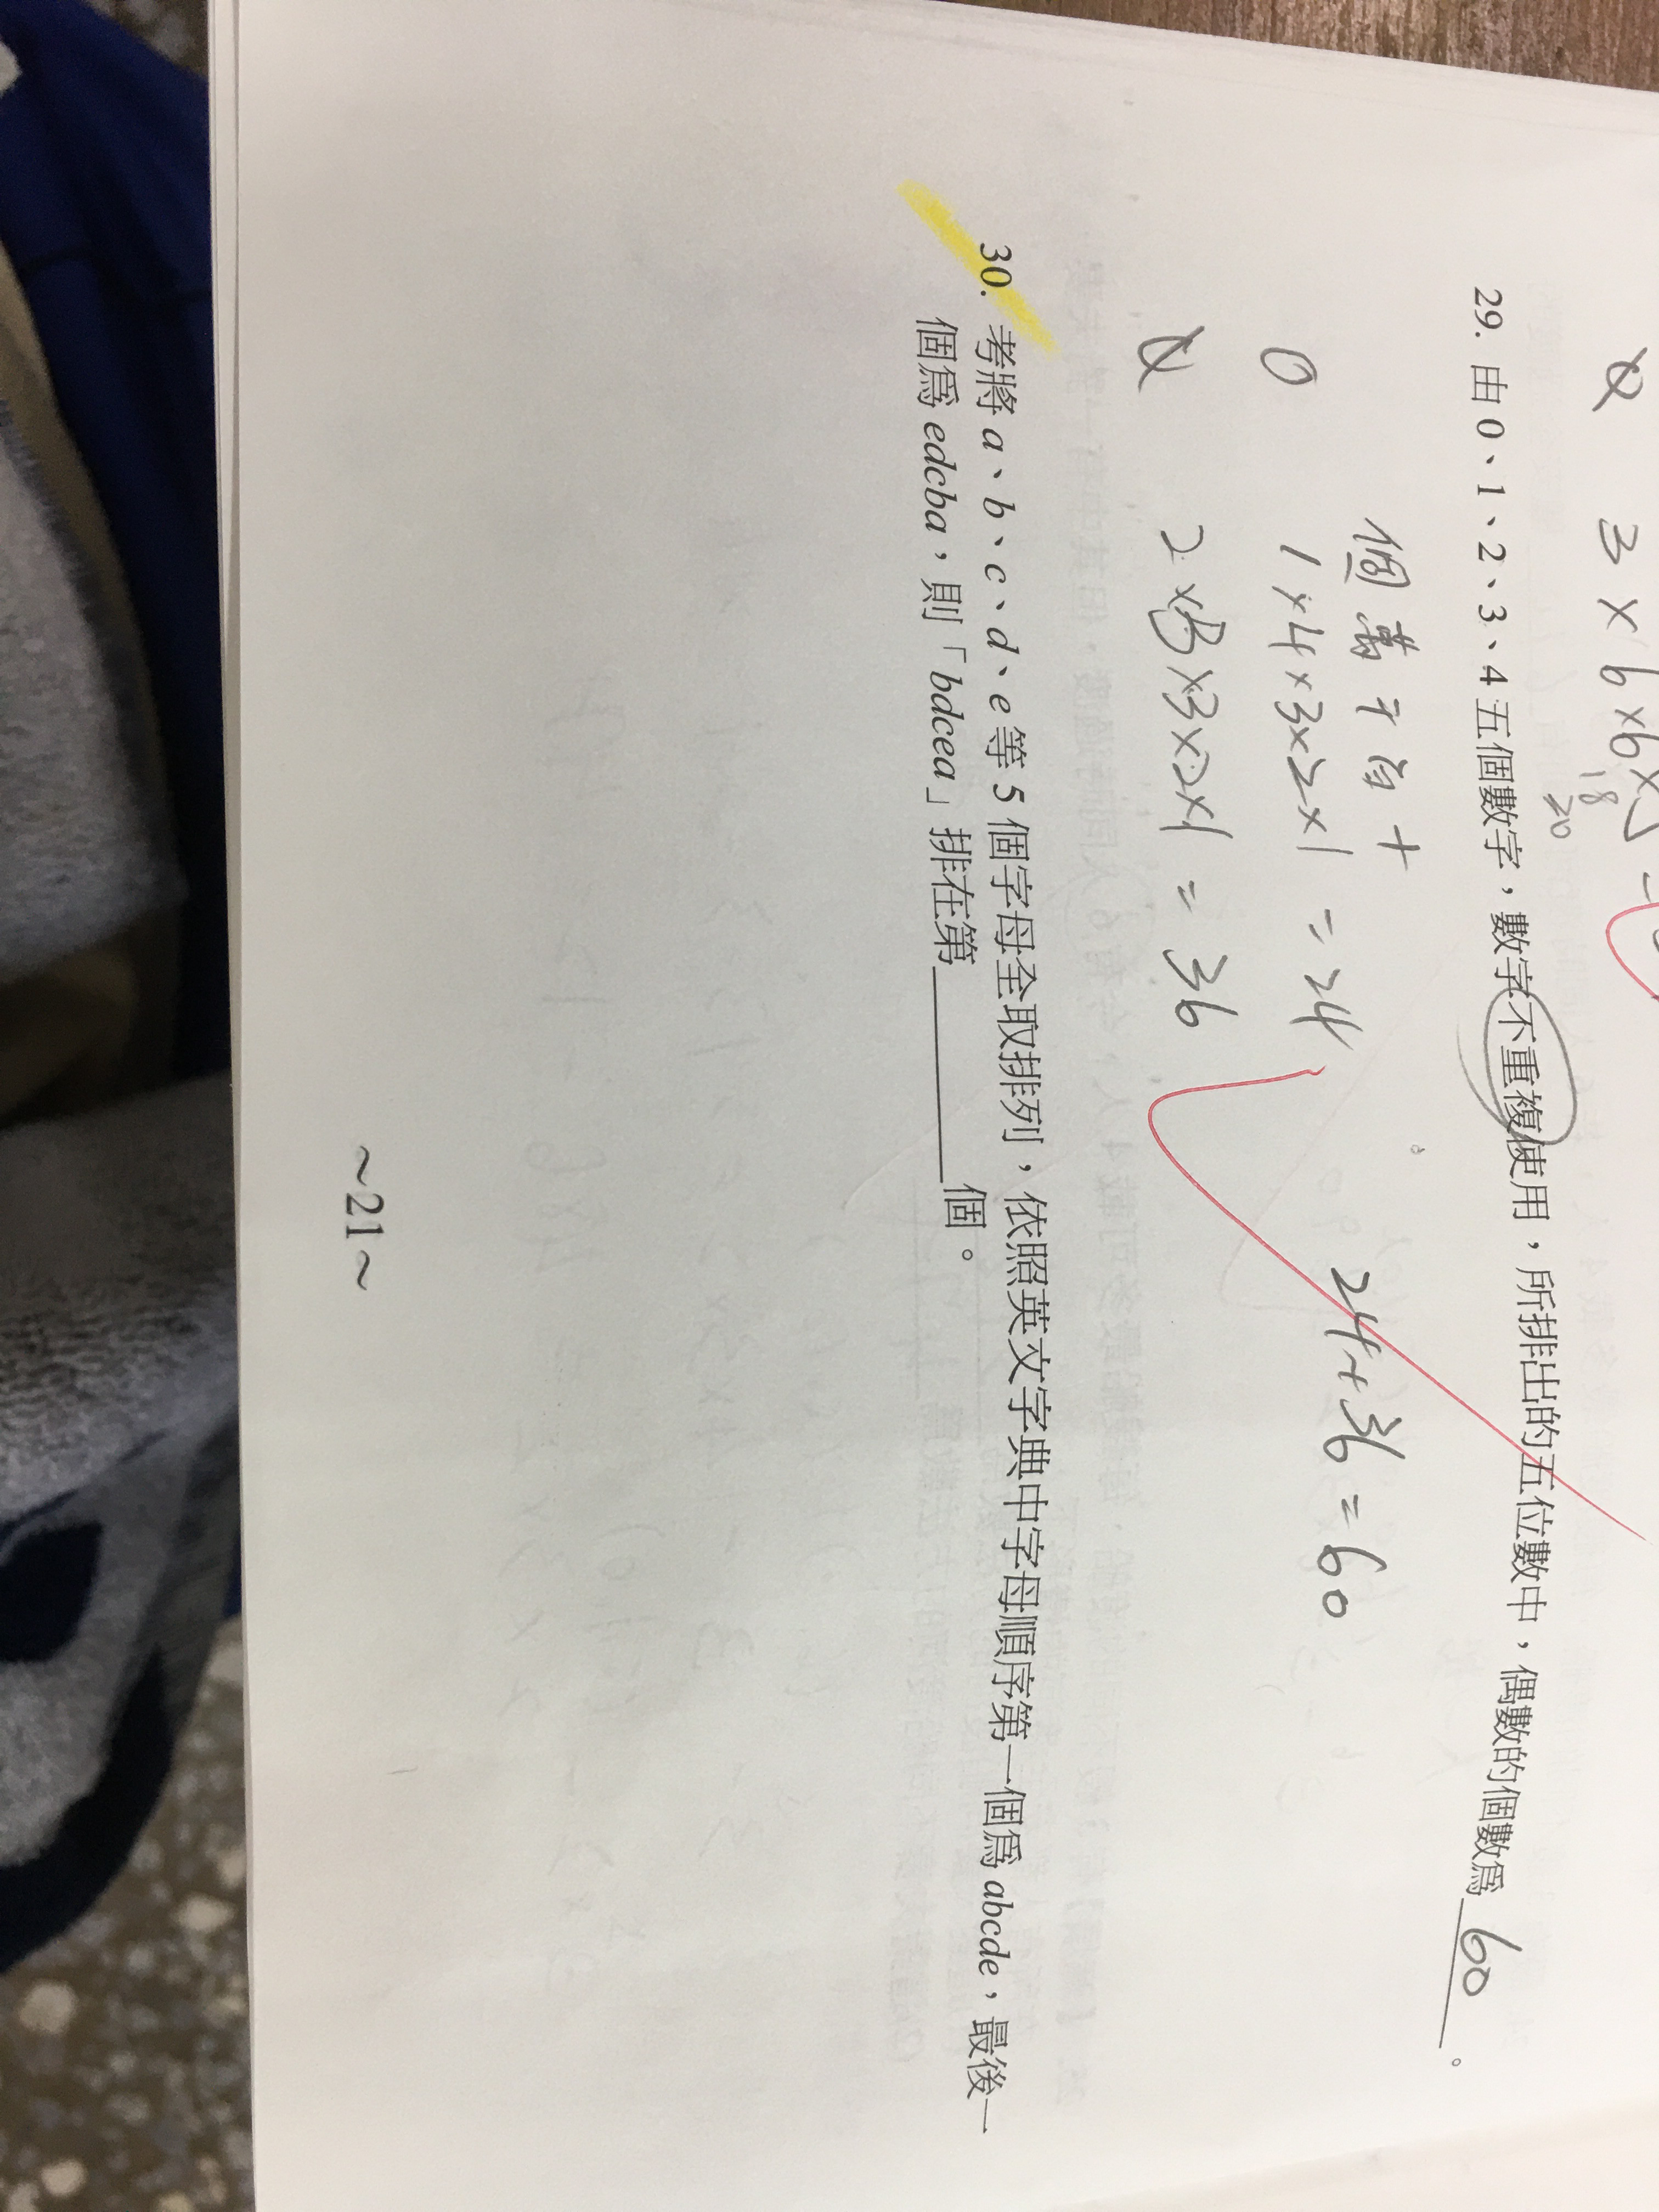 3 × 6 × 6 ×
18
20
29. 由 0、1、2、3、4 五個數字，數字不重複使用，所排出的五位數中，偶數的個數為 60 。
個萬千百十
0 1×4×3×2×1 = 24
24+36 = 60
2×3×3×2×1 = 36
30. 考將 a、b、c、d、e 等 5 個字母全取排列，依照英文字典中字母順序第一個為 abcde，最後一
個為 edcba，則「bdcea」排在第 個。
～21～